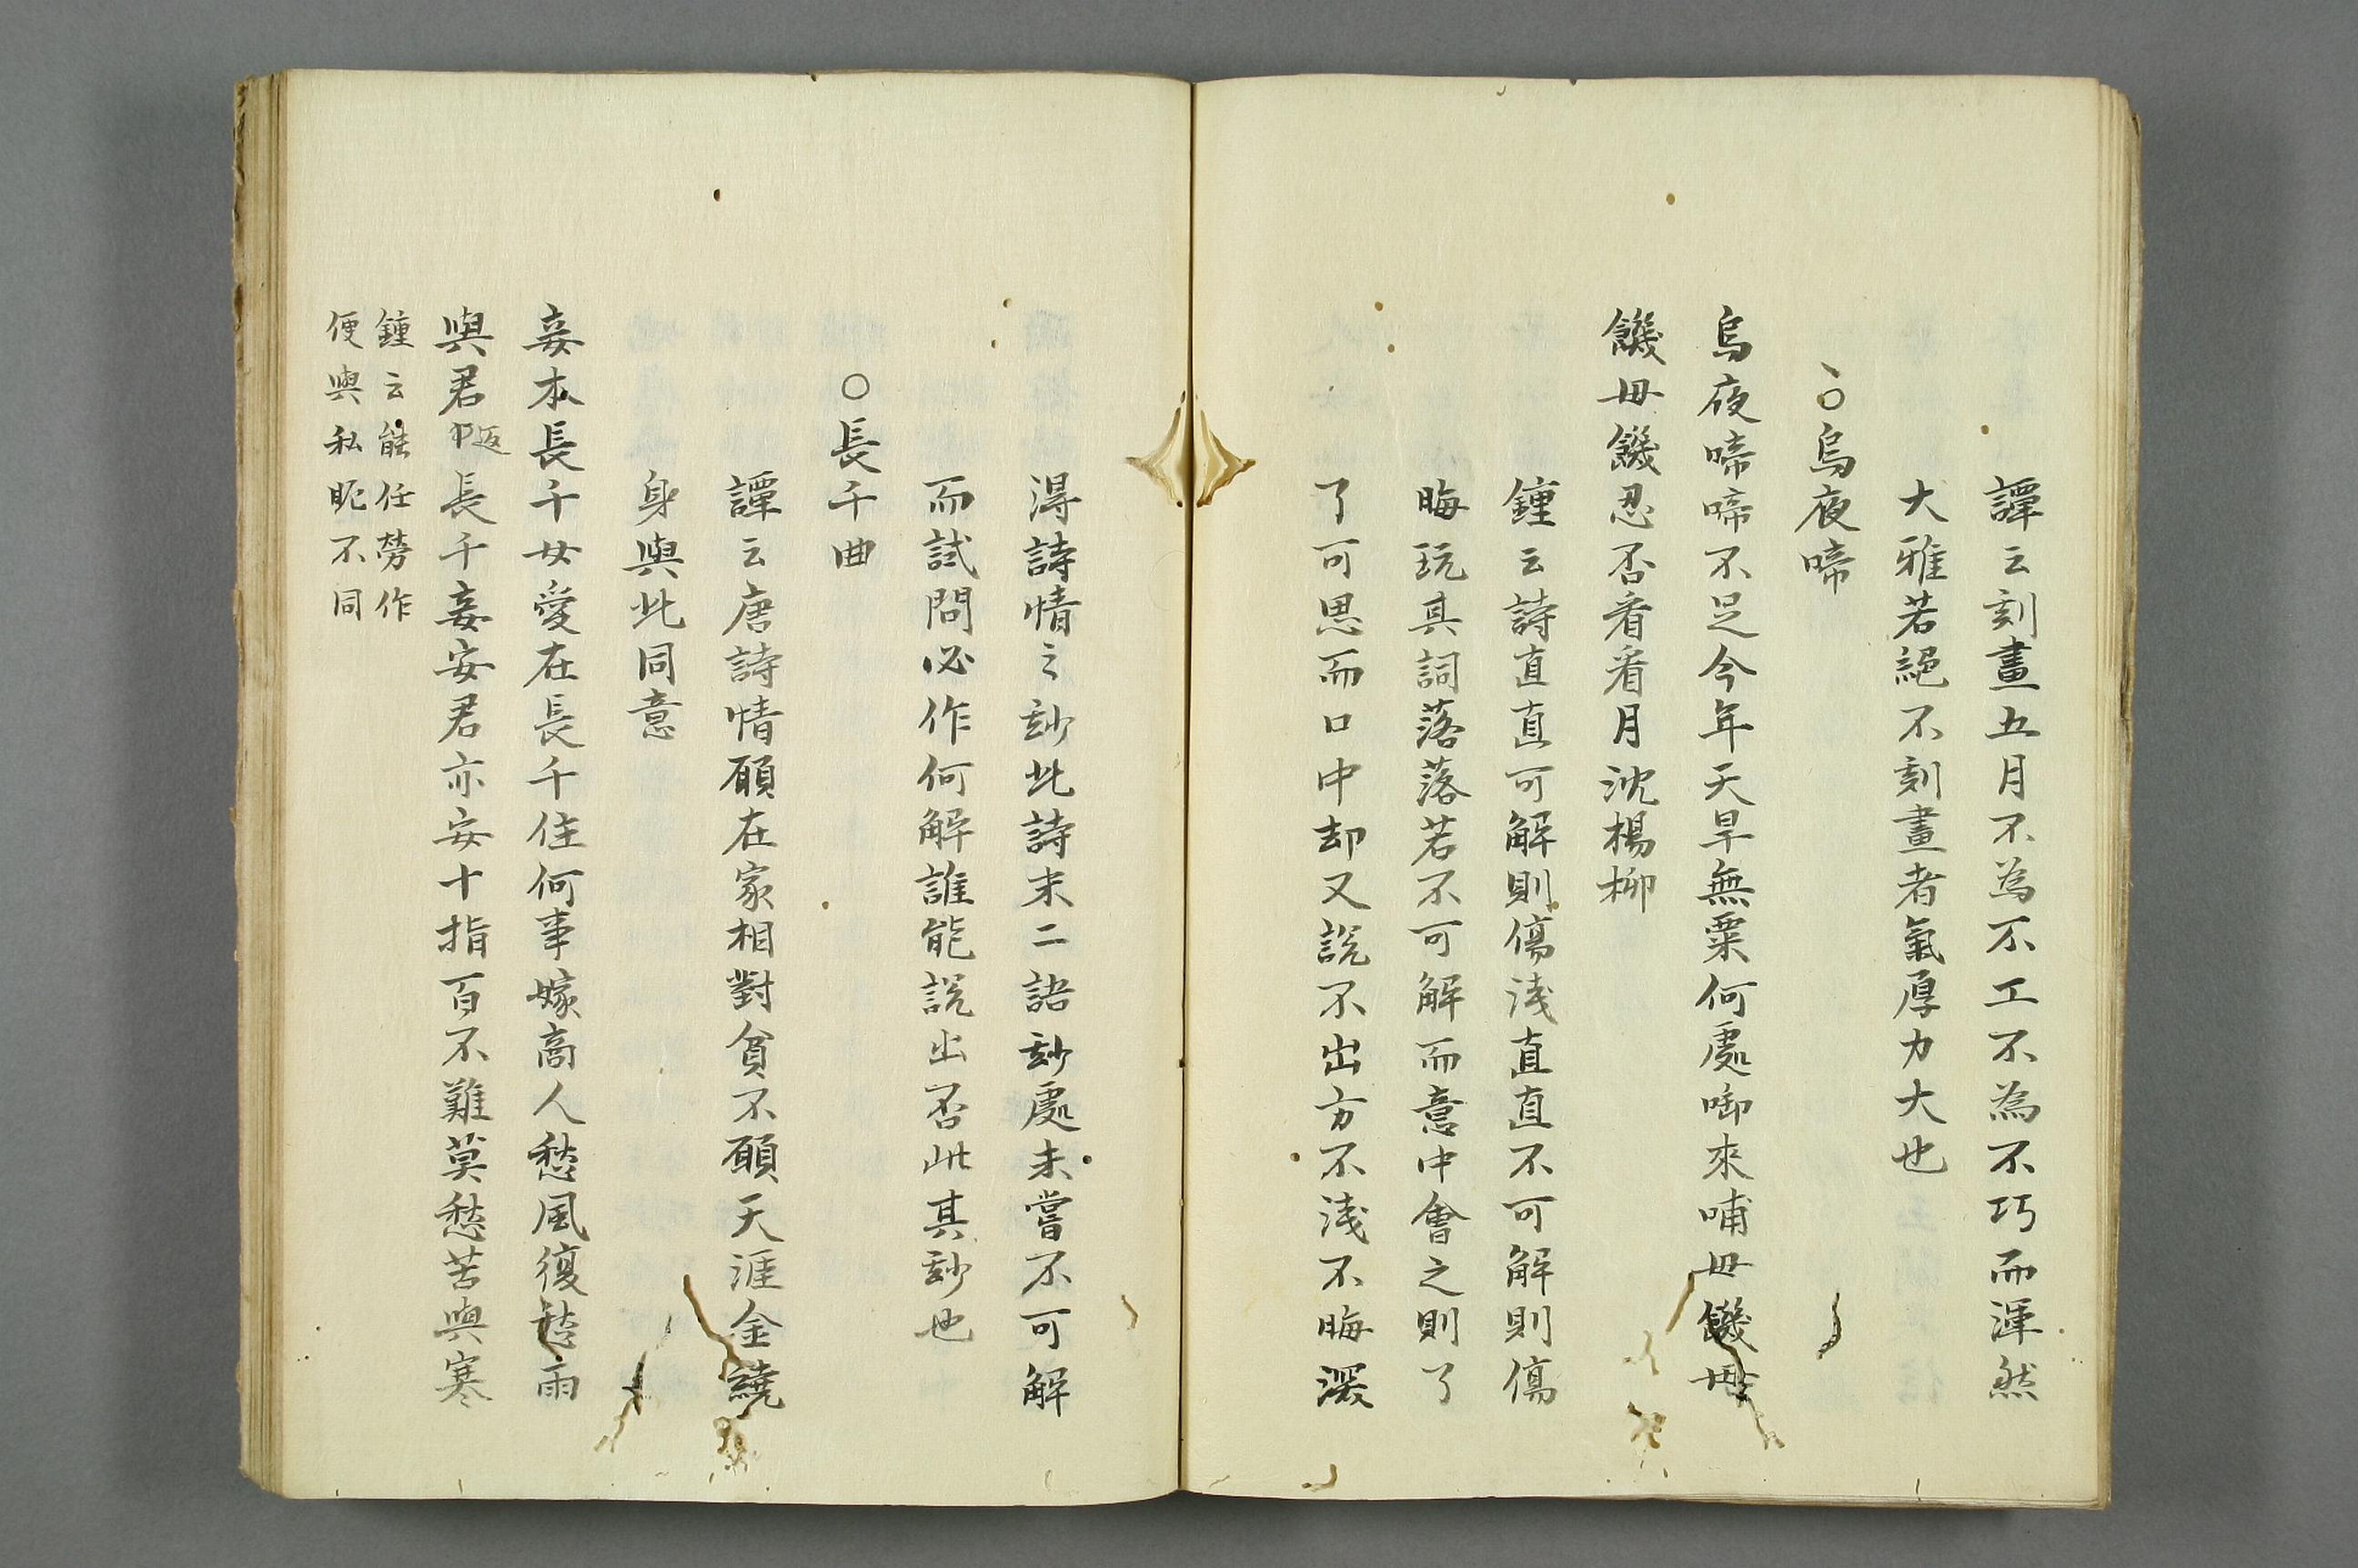 譚云刻畫五月不為不工不為不巧而渾然
大雅若絕不刻畫者氣厚力大也
○烏夜啼
烏夜啼啼不足今年天旱無粟何處啣來哺毋饑毋
饑毋饑忍否看看月沈楊柳
鍾云詩直直可解則傷淺直直不可解則傷
晦玩其詞落落若不可解而意中會之則了
了可思而口中却又說不出方不淺不晦深
淂詩情之玅此詩末二語玅處未嘗不可解
而試問必作何解誰能說出否此其玅也
○長干曲
譚云唐詩情願在家相對貧不願天涯金繞
身與此同意
妾本長干女愛在長干住何事嫁商人愁風復愁雨
與君返長干妾安君亦安十指百不難莫愁苦與寒
鍾云能任勞作
便與私昵不同